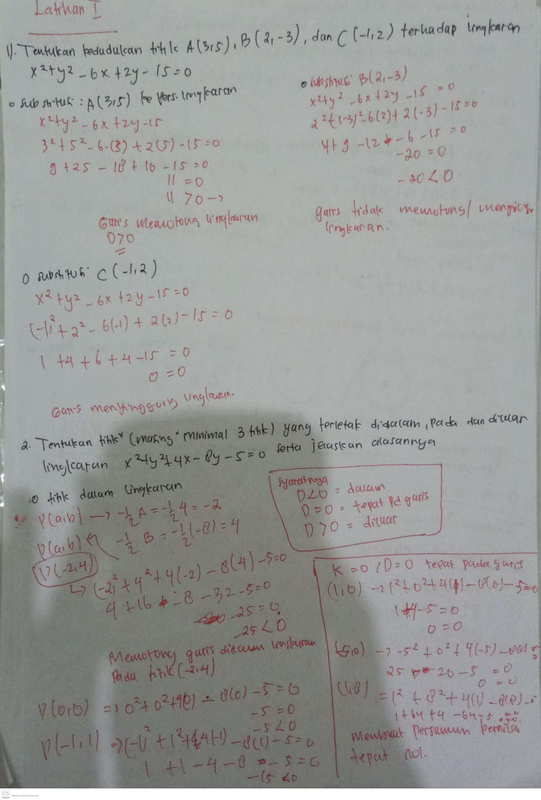 Latihan I
1). Tentukan kedudukan titik A(3,5), B(2,-3), dan C(-1,2) terhadap lingkaran
x²+y²-6x+2y-15=0
o substitusi : A(3,5) ke pers. lingkaran
x²+y²-6x+2y-15
3²+5²-6.(3)+2(5)-15=0
9+25-18+10-15=0
11=0
11>0→
Garis memotong lingkaran
D>0
o substitusi B(2,-3)
x²+y²-6x+2y-15=0
2²+(-3)²-6(2)+2(-3)-15=0
4+9-12-6-15=0
-20=0
-20<0
garis tidak memotong/
lingkaran.
o substitusi C(-1,2)
x²+y²-6x+2y-15=0
(-1)²+2²-6(-1)+2(2)-15=0
1+4+6+4-15=0
0=0
Garis menyinggung lingkaran.
2. Tentukan titik" (masing" minimal 3 titik) yang terletak didalam, pada dan diluar
lingkaran x²+y²+4x-8y-5=0 serta jelaskan alasannya
o titik dalam lingkaran
P(a,b) → -½A = -½4 = -2
P(a,b) -½B = -½(-8) = 4
P(-2,4)
(-2)²+4²+4(-2)-8(4)-5=0
4+16-8-32-5=0
-25=0
-25<0
Memotong garis didalam lingkaran
Pada titik (-2,4)
P(0,0) = 0²+0²+4(0)-8(0)-5=0
-5=0
-5<0
P(-1,1) ⇒ (-1)²+1²+4(-1)-8(1)-5=0
1+1-4-8-5=0
-15<0
Syaratnya
D<0 = dalam
D=0 = tepat pd garis
D>0 = diluar
K=0 / D=0 tepat pada garis
(1,0) → 1²+0²+4(1)-8(0)-5=0
1+4-5=0
0=0
(-5,0) → -5²+0²+4(-5)-8(0)-5
25-20-5=0
0=0
(1,8) = 1²+8²+4(1)-8(8)-5
1+64+4-64-5=0
Membuat persamaan bernilai
tepat nol.